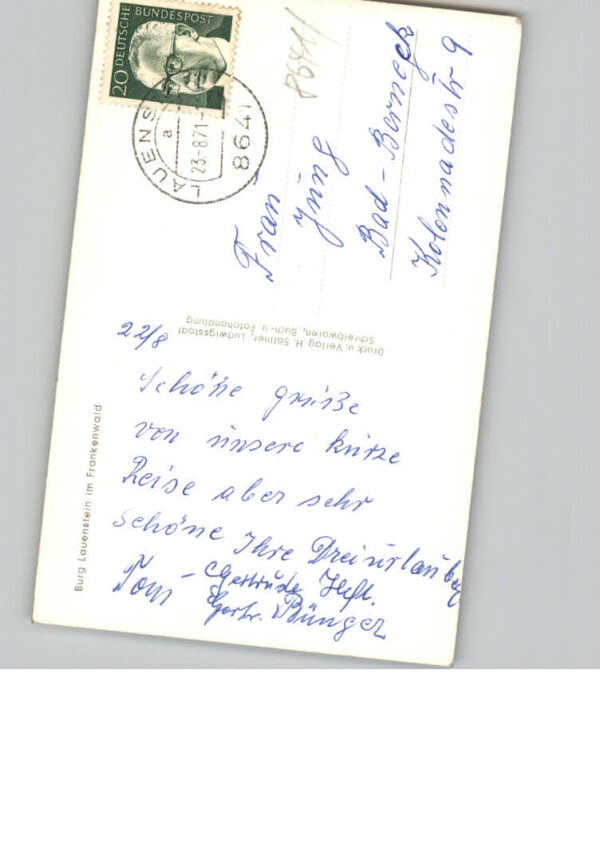 20 DEUTSCHE BUNDESPOST
LAUENS
a
23-8.71-
8641
8641/
Frau
Jung
Bad-Berneck
Kolonnadestr 9
Druck u. Verlag H. Söllner, Ludwigsstadt
Schreibwaren, Buch- u Fotohandlung
Burg Lauenstein im Frankenwald
22/8
Schöne grüße
von unsere kurze
Reise aber sehr
schöne Ihre Dreiurlauber
Toni - Gertrude
Gertr. Bünger